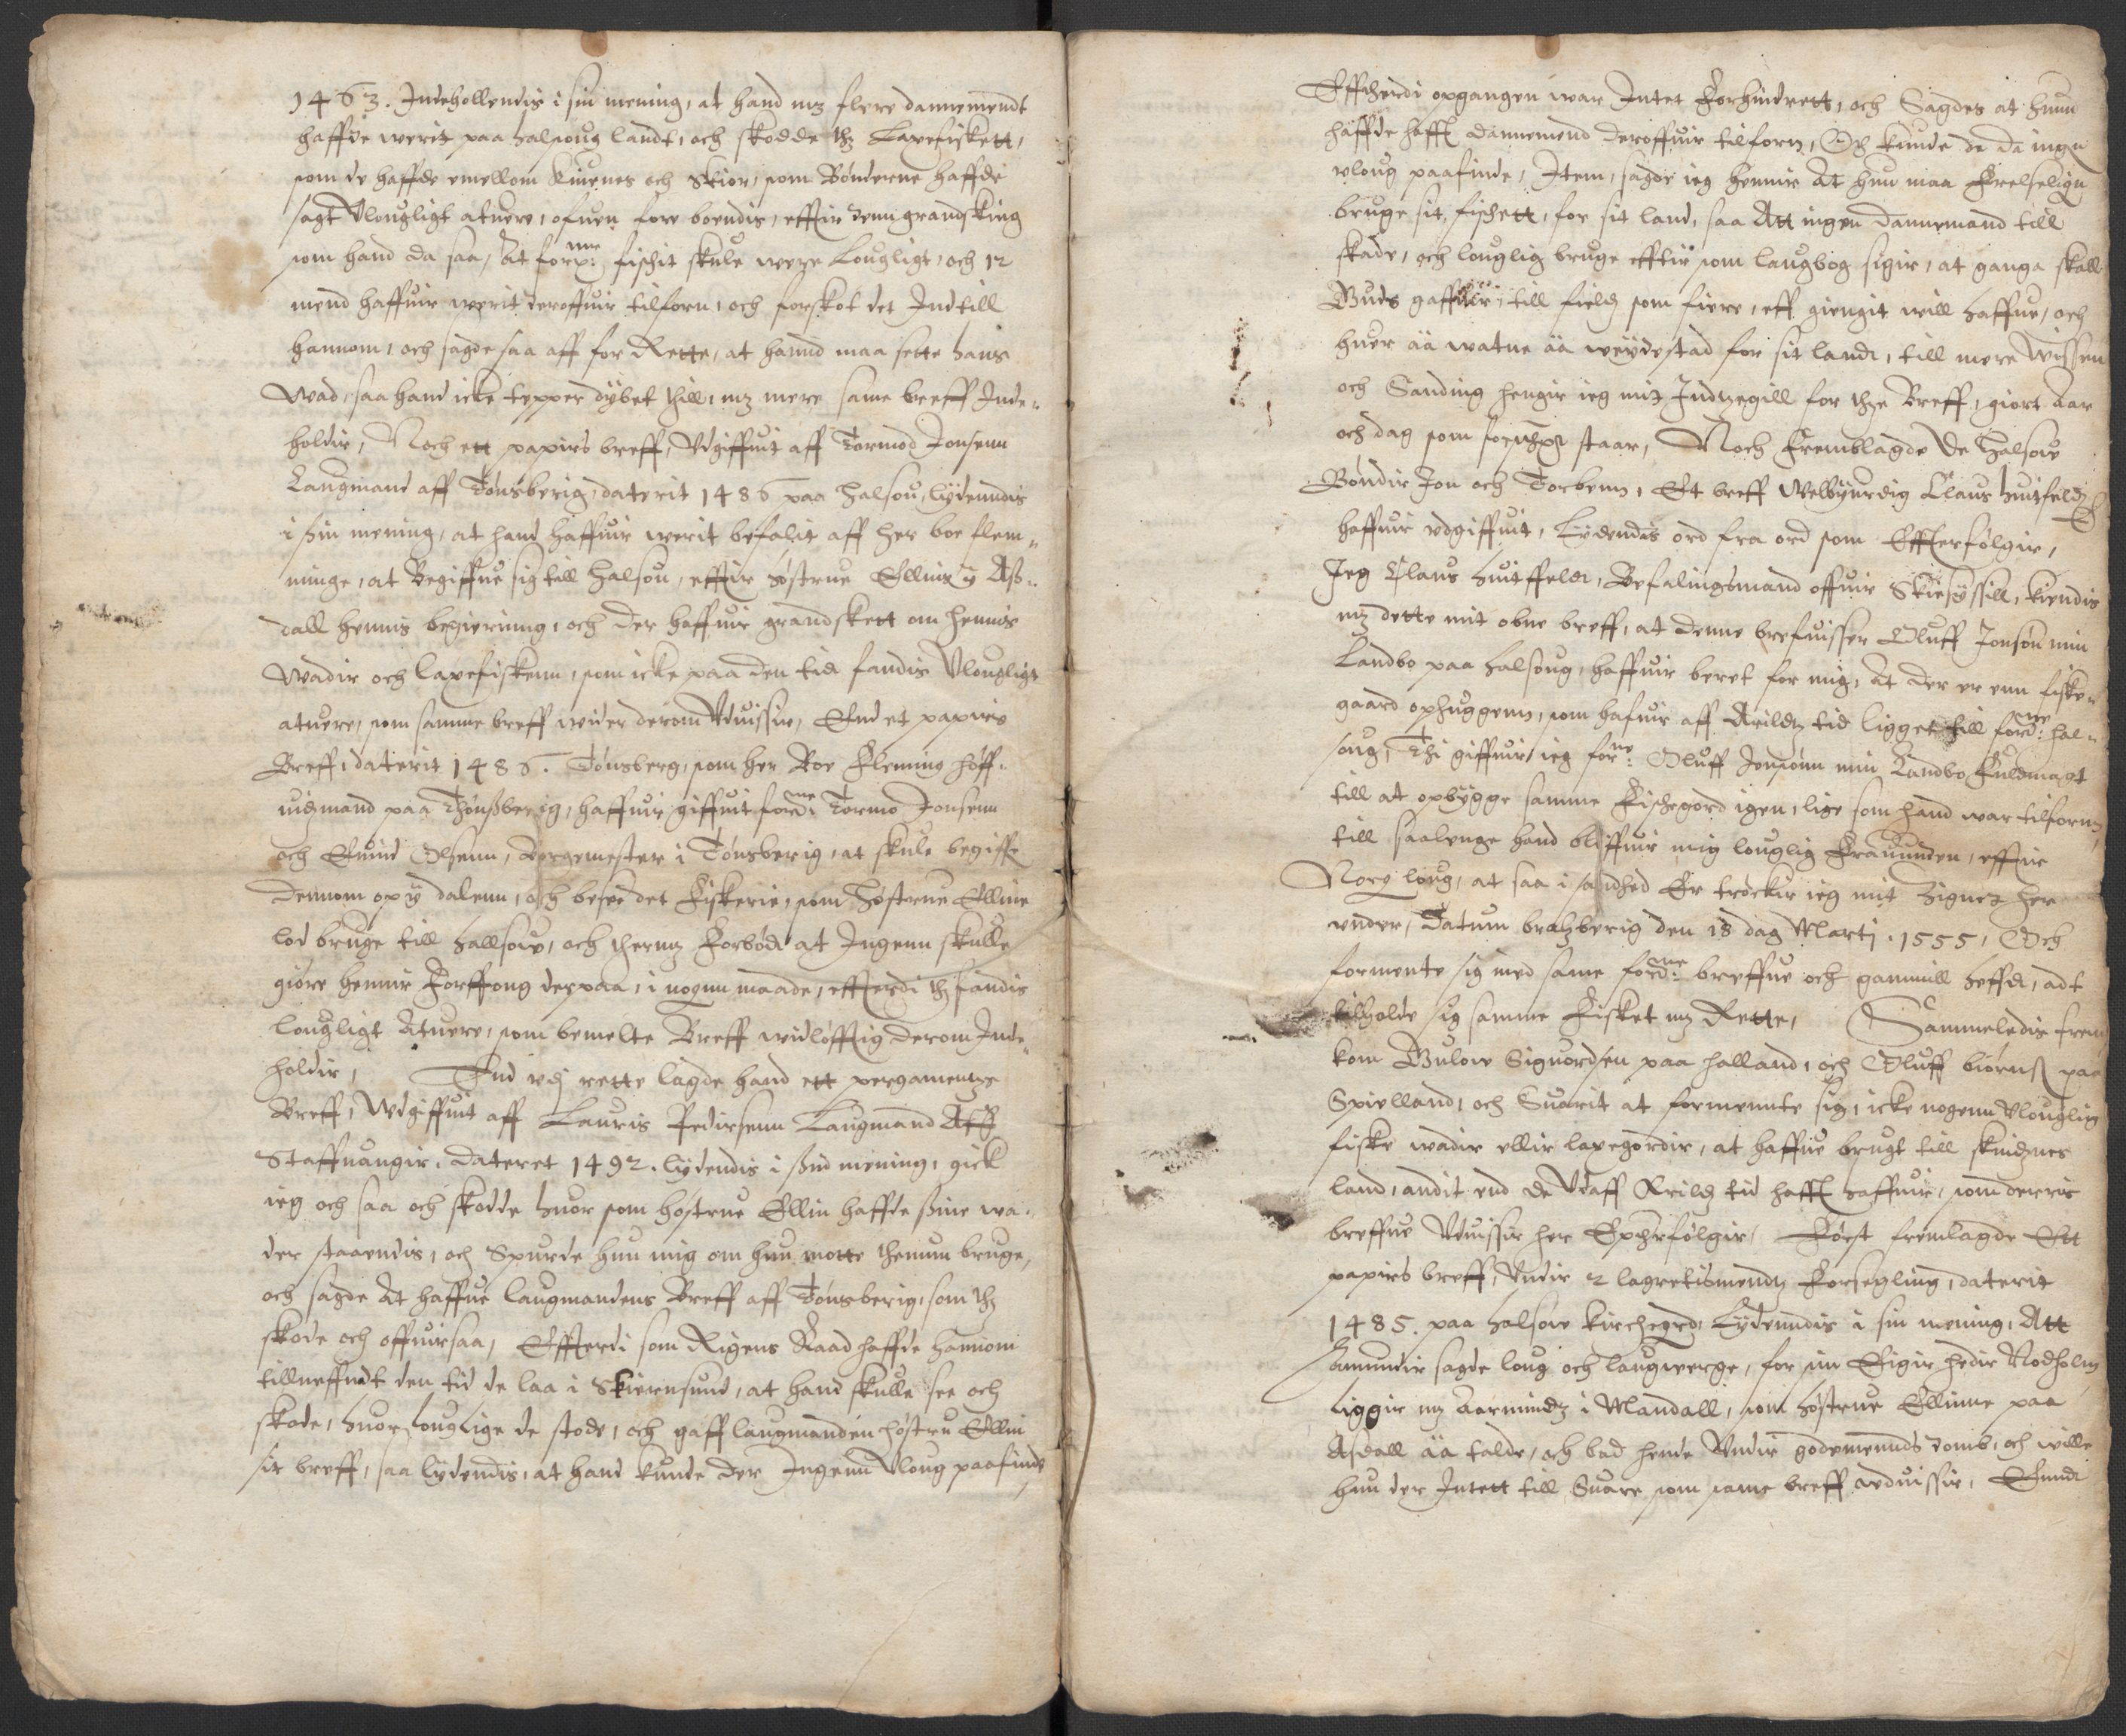 1463. Indehollendis i sin mening, at hand mz flere dannemendt
haffde werit paa halsoug landt, och skodde thz Laxefiskett,
som de haffde emellom Kuenes och Skior, som Bønderne haffde
sagt Vlougligt atuere, ofuen fore boendis, effter denn grandsking
som hand da saa, At forne: fischit skule were Lougligt, och 12
mend haffuir werit deroffuir tilforn, och forskot det Indtill
hannom, och sagde saa aff for Rette, at hannd maa sette hans
Wad, saa hand icke tepper dybet till, mz mere same breff Inde-
holdir, Noch ett papirs breff, Vdgiffuit aff Tormod Jonsenn
Laugmand aff Tønsberig, daterit 1486 paa Halsou, lydenndis
i sin mening, at hand haffuir werit befalit aff her boe flem-
minge, at Begiffue sig till Halsou, effter høstrue Ellins y Aß-
dall hennis begierinng, och der haffuir grandskett om hennis
Wadir och laxefiskenn, som icke paa den tid fandis Vlougligt
atuere, som samme breff wider derom Vduissir, End et papirs
Breff, daterit 1486. Tønsberg, som her Boe Fleming høff-
uidzmand paa Thønßberig, haffuir giffuit fordne: Tormo Jonsenn
och Euind Olsenn, Borgemester i Tønsberig, at skule begiffe
dennom op y dalenn, och besee det Fiskerie, som høstrue Ellinn
lod bruge till Hallsou, och thermz Forbød at Ingenn skulle
giøre hennir Forffong derpaa, i nogenn maade, effterdi thz fandis
lougligt Atuere, som bemelte Breff widløfftig derom Inde-
holdir, End vdj rette lagde hand ett pergamentz
Breff, Vdgiffuit aff Lauris Pedirsenn Laugmand Aff
Staffuangir, dateret 1492. lydendis i sind mening, gick
ieg och saa och skodde huor som høstrue Ellin haffde sine wa-
der staaendis, och Spurde hun mig om hun motte themm bruge,
och sagde At haffue laugmandens Breff aff Tønsberig, som thz
skode och offuirsaa, Effterdi som Rigens Raad haffde hannom
tillneffndt den tid de laa i Skiernsund, at hand skulle see och
skode, huor louglige de stode, och gaff laugmanden høstru Ellin
sit breff, saa lydendis, at hand kunde der Ingenn Vloug paafinde
Effterdi opgangen war Intet Forhindrett, och Sagdes at hunn
haffde hafft dannemend deroffuir tilforn, Och kunde de da ingen
vloug paafinde, Item, sagde ieg hennir At hun maa Frelseligen
bruge sit fischett, for sit land, saa Att ingen dannemand till
skade, och louglig bruge effter som laugbog sigir, at ganga skall
Guds gaffuir, till field som fiere, eff giengit will haffue, och
huer ää watne ää weydestad for sit land, till mere wissen
och Sanding hengir ieg mit Indtzegill for thze Breff, giort Aar
och dag som forschr staar, Noch Fremblagde de halsou
Bøndir Jon och Torbenn, Et breff Welbyurdig Claus huitfeldt
haffuir vdgiffuit, Lydendis ord fra ord som Effterfølgir,
Jeg Claus Huitffeld, Befalingsmand offuir Skiesyssill, kiendis
mz dette mit obne breff, at denne brefuisser Oluff Jonsøn min
Landbo paa halsoug, haffuir beret for mig, At der er enn fiske-
gaard ophuggenn, som hafuir aff Arildz tid ligget till fordne: hal-
soug, Thi giffuir ieg forne: Oluff Jonsønn min Landbo Fuldmagt
till at opbygge samme Fischegord igen, lige som hand war tilfornn,
till saalenge hand bliffuir mig louglig Frauunden, effter
Norg loug, at saa i sandhed Er trøckir ieg mit Zignet her
vnder, Datum bratzberig den 18 dag Martj. 1555, Och
formente sig med same fordne: breffue och gammill heffd, adt
tilholde sig samme Fisket mz Rette, Sammeledis frem
kom Gulow Siguordsen paa Halland, och Oluff biørnß paa
Spielland, och Suarit at formennte sig, icke nogenn Vlouglig
fiske wadir ellir laxegordir, at haffue brugt till skindznes
land, andit end de Vdaff Arildz tid hafft haffuir, som derris
breffue Vduissir her Epterfølgir, Først fremlagde Ett
papirs breff, Vndir 2 lagrettismendtz Forsegling, daterit
1485. paa halsou kirchegrd, Lydenndis i sin mening, Att
Amundir sagde loug och laugwerge, for sin Eigir hedir Rodholm
liggir mz Aarmindz i Mandall, som høstrue Ellinne paa
Asdall ää talde, och bad hende Vndir godemennds domb, och wille
hun der Intett till Suare som same breff wduissir, Ennd